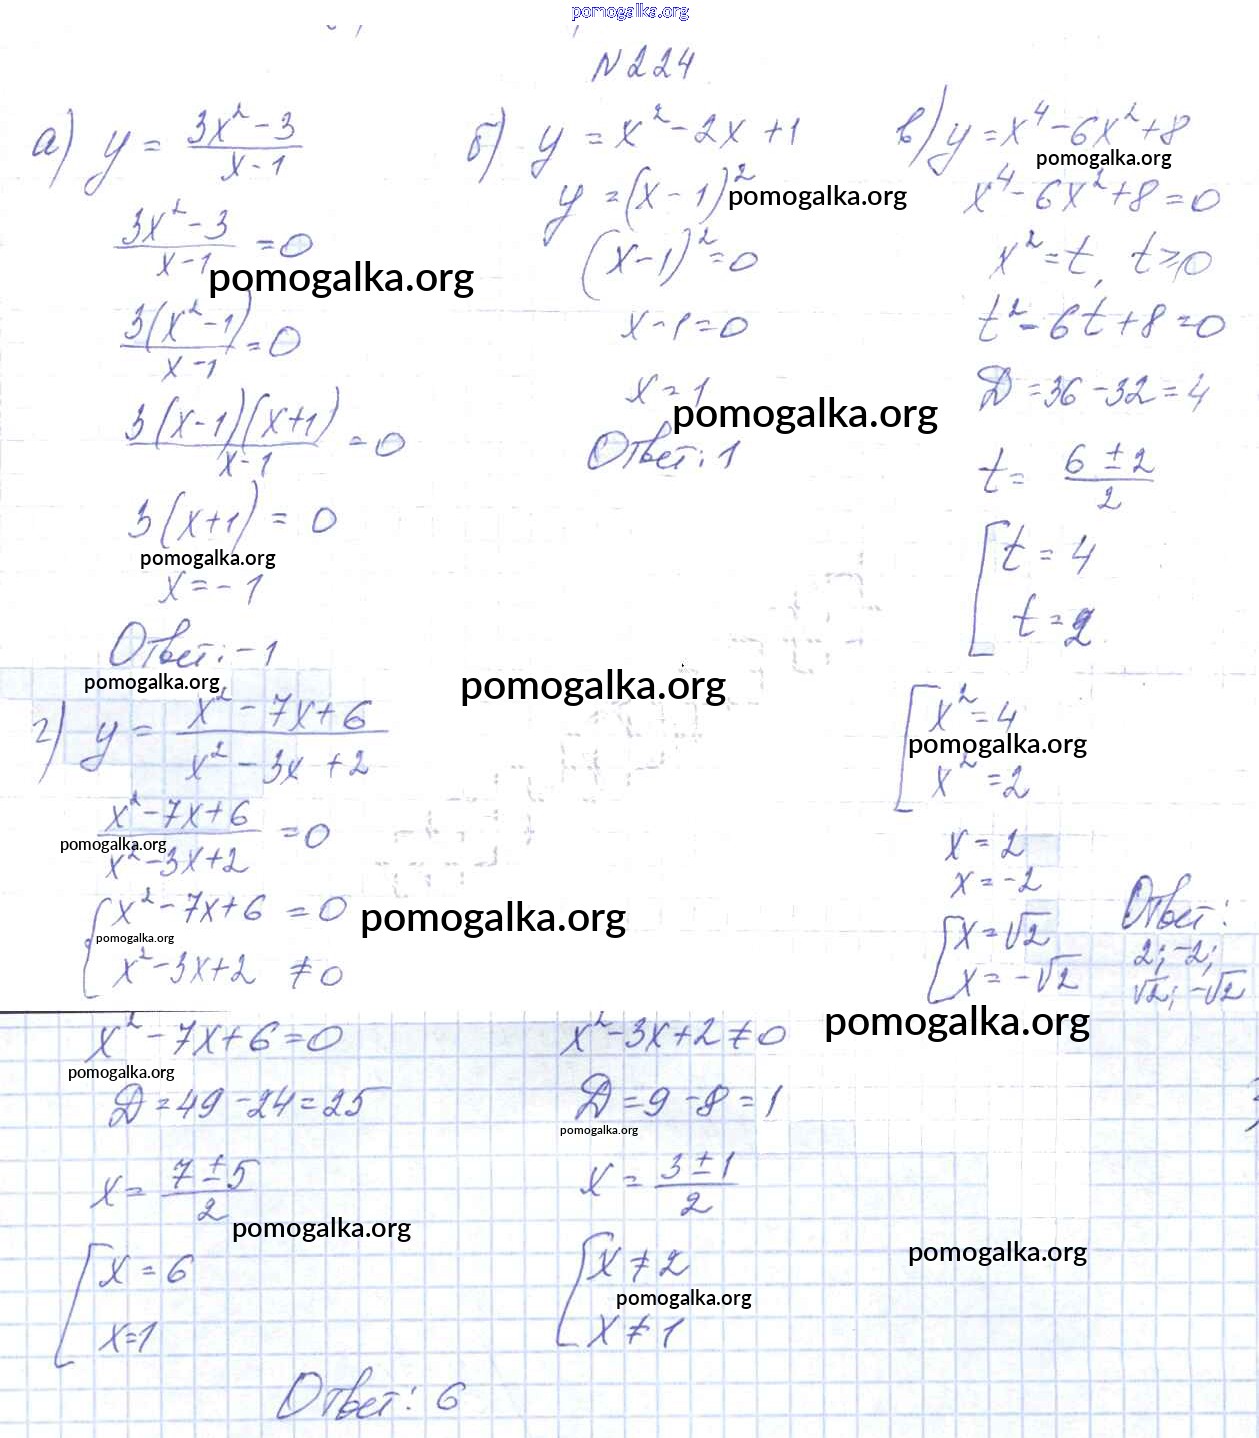 pomogalka.org
N224
а) y = (3x² - 3)/(x - 1)
(3x² - 3)/(x - 1) = 0
pomogalka.org
3(x² - 1)/(x - 1) = 0
3(x - 1)(x + 1)/(x - 1) = 0
3(x + 1) = 0
pomogalka.org
x = -1
Ответ: -1
pomogalka.org
б) y = x² - 2x + 1
y = (x - 1)²
pomogalka.org
(x - 1)² = 0
x - 1 = 0
x = 1
pomogalka.org
Ответ: 1
pomogalka.org
в) y = x⁴ - 6x² + 8
pomogalka.org
x⁴ - 6x² + 8 = 0
x² = t, t ⩾ 0
t² - 6t + 8 = 0
D = 36 - 32 = 4
t = (6 ± 2)/2
[ t = 4
t = 2
[ x² = 4
pomogalka.org
x² = 2
x = 2
x = -2
[ x = √2
x = -√2
Ответ:
2; -2;
√2; -√2
pomogalka.org
г) y = (x² - 7x + 6)/(x² - 3x + 2)
(x² - 7x + 6)/(x² - 3x + 2) = 0
pomogalka.org
{ x² - 7x + 6 = 0
pomogalka.org
pomogalka.org
x² - 3x + 2 ≠ 0
x² - 7x + 6 = 0
pomogalka.org
D = 49 - 24 = 25
x = (7 ± 5)/2
pomogalka.org
[ x = 6
x = 1
x² - 3x + 2 ≠ 0
D = 9 - 8 = 1
pomogalka.org
x = (3 ± 1)/2
[ x ≠ 2
pomogalka.org
x ≠ 1
pomogalka.org
Ответ: 6